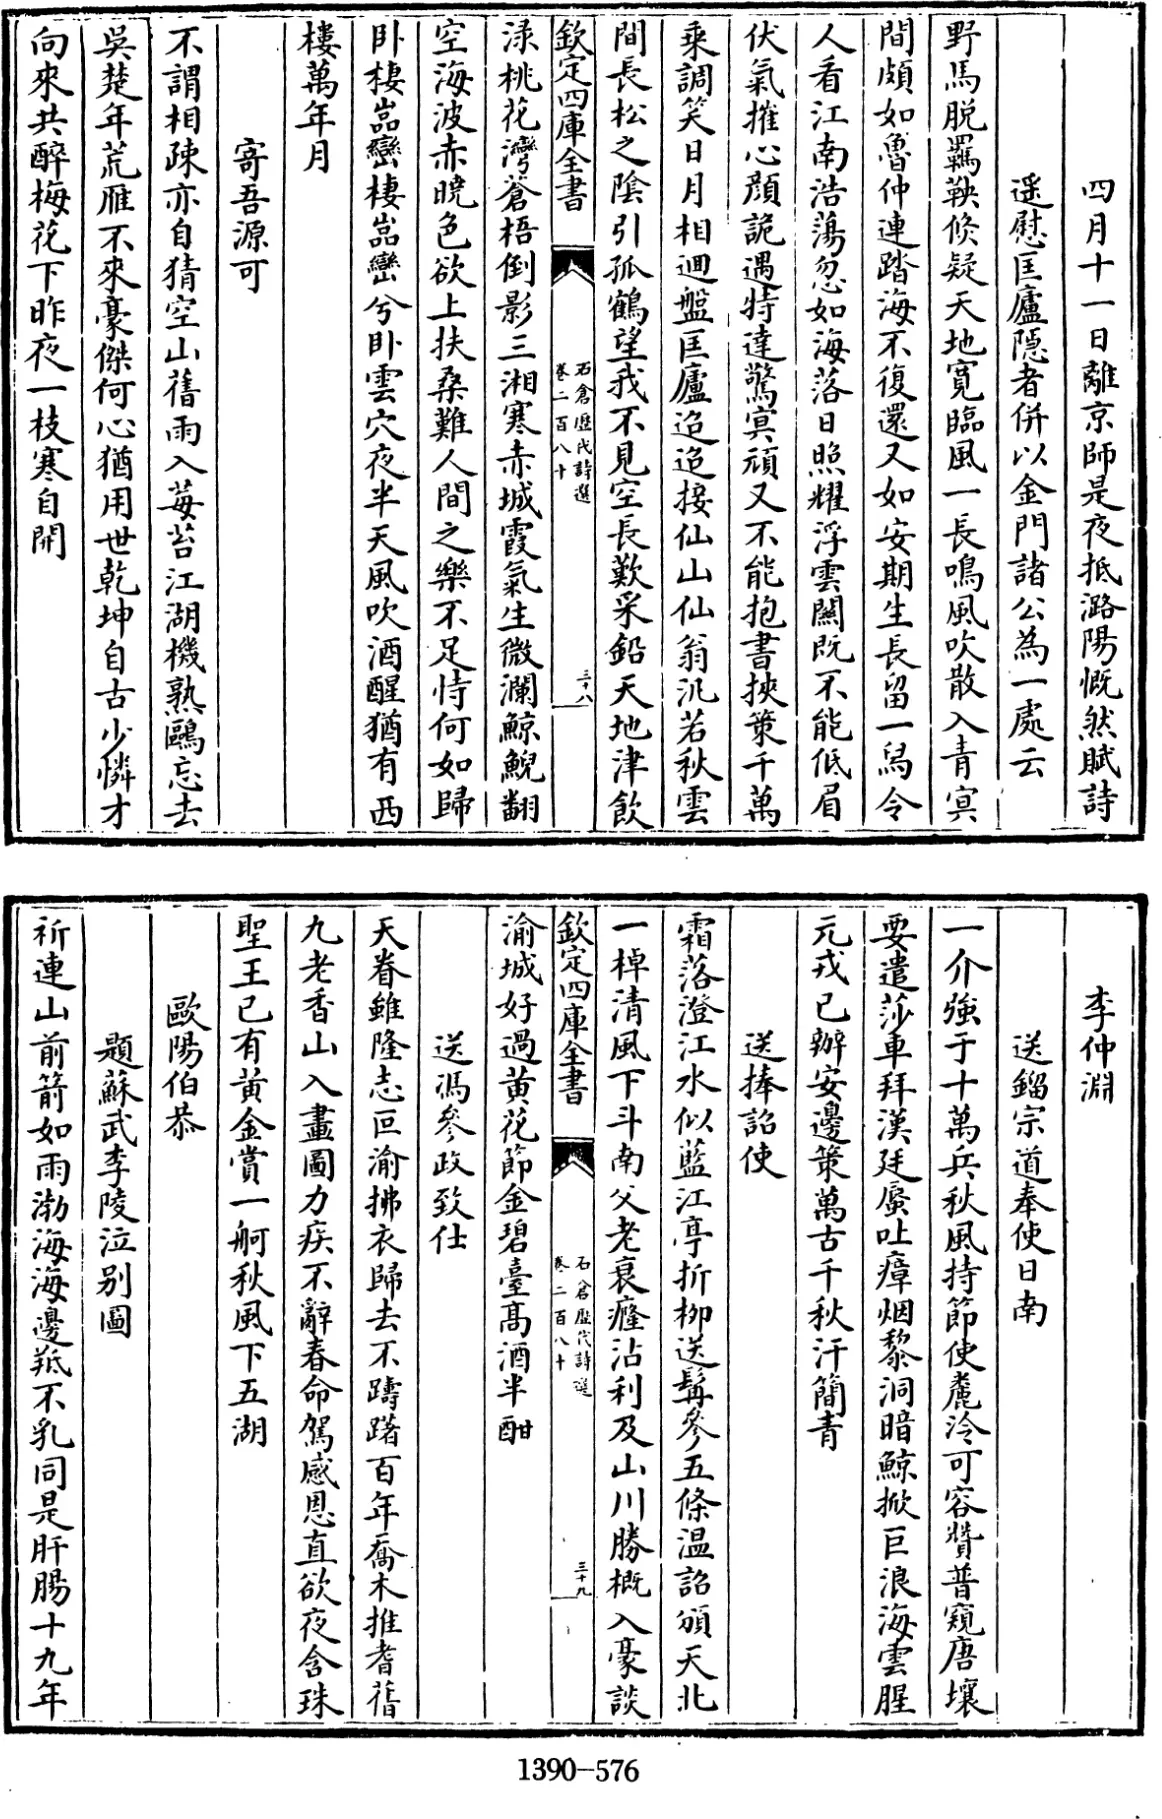 四月十一日離京師是夜抵潞陽慨然賦詩
遥慰匡廬隠者併以金門諸公為一處云
野馬脱羈鞅倐疑天地寛臨風一長鳴風吹散入青㝠
間頗如魯仲連踏海不復還又如安期生長留一舄令
人看江南浩蕩忽如海落日照耀浮雲闗既不能低眉
伏氣摧心顔詭遇特達驚㝠頑又不能抱書挾䇿千萬
乗調笑日月相迴盤匡廬迢迢接仙山仙翁汎若秋雲
間長松之陰引孤鶴望我不見空長歎采鉛天地津飲
欽定四庫全書
石倉歴代詩選
卷二百八十
三十八
渌桃花灣蒼梧倒影三湘寒赤城霞氣生微瀾鯨鯢翻
空海波赤曉色欲上扶桑難人間之樂不足恃何如歸
卧棲嵓巒棲嵓巒兮卧雲穴夜半天風吹酒醒猶有西
樓萬年月
寄吾源可
不謂相疎亦自猜空山舊雨入莓苔江湖機熟鷗忘去
吳楚年荒雁不來豪傑何心猶用世乾坤自古少憐才
向來共醉梅花下昨夜一枝寒自開
李仲淵
送鎦宗道奉使日南
一介強于十萬兵秋風持節使麾泠可容贊普窺唐壤
要遣莎車拜漢廷蜃吐瘴烟黎洞暗鯨掀巨浪海雲腥
元戎已辦安邊䇿萬古千秋汗簡青
送捧詔使
霜落澄江水似藍江亭折栁送髯參五條温詔頒天北
一棹清風下斗南父老衰癃沾利及山川勝概入豪談
欽定四庫全書
石倉歴代詩選
卷二百八十
三十九
渝城好過黄花節金碧臺髙酒半酣
送馮參政致仕
天眷雖隆志叵渝拂衣歸去不躊躇百年喬木推耆舊
九老香山入畫圖力疾不辭春命駕感恩直欲夜含珠
聖王已有黄金賞一舸秋風下五湖
歐陽伯恭
題蘇武李陵泣别圖
祈連山前箭如雨渤海海邊羝不乳同是肝腸十九年
1390-576